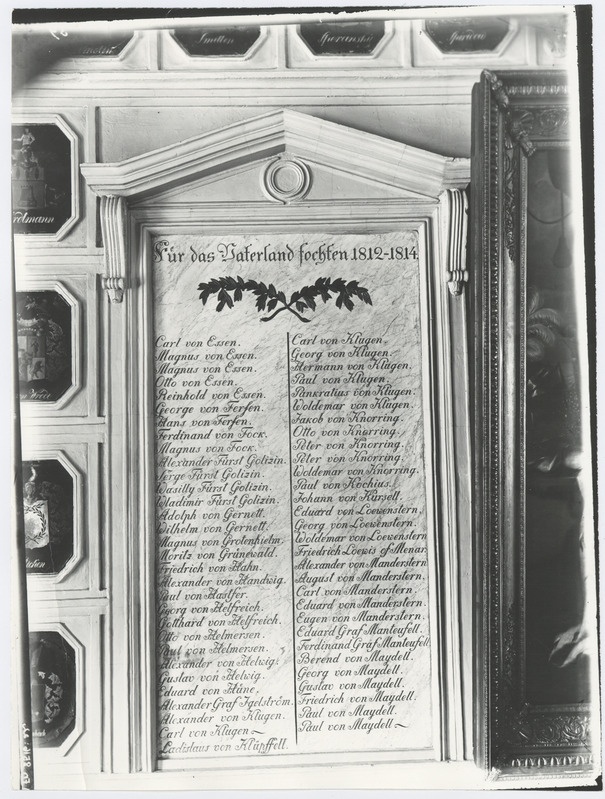 Smitten
Für das Vaterland fochten 1812-1814
Carl von Essen.
Magnus von Essen.
Magnus von Essen.
Otto von Essen.
Reinhold von Essen.
George von Fersen.
Hans von Fersen.
Ferdinand von Fock.
Magnus von Fock.
Alexander Fürst Golizin.
Serge Fürst Golizin.
Wasilly Fürst Golizin.
Wladimir Fürst Golizin.
Adolph von Gernett.
Wilhelm von Gernett.
Magnus von Grotenhielm.
Moritz von Grünewald.
Friedrich von Hahn.
Alexander von Handwig.
Paul von Hastfer.
Georg von Helfreich.
Gotthard von Helfreich.
Otto von Helmersen.
Paul von Helmersen.
Alexander von Helwig.
Gustav von Helwig.
Eduard von Hüne.
Alexander Graf Igelström.
Alexander von Klugen.
Carl von Klugen
Ladislaus von Klüpffell.
Carl von Klugen.
Georg von Klugen.
Hermann von Klugen.
Paul von Klugen.
Pankratius von Klugen.
Woldemar von Klugen.
Jakob von Knorring.
Otto von Knorring.
Peter von Knorring.
Peter von Knorring.
Woldemar von Knorring.
Paul von Kochius.
Johann von Kursell.
Eduard von Loewenstern.
Georg von Loewenstern.
Woldemar von Loewenstern
Friedrich Löewis of Menar.
Alexander von Manderstern
August von Manderstern.
Carl von Manderstern.
Eduard von Manderstern.
Eugen von Manderstern.
Eduard Graf Manteufell.
Ferdinand Graf Manteufell.
Berend von Maydell.
Georg von Maydell.
Gustav von Maydell.
Friedrich von Maydell.
Paul von Maydell.
Paul von Maydell